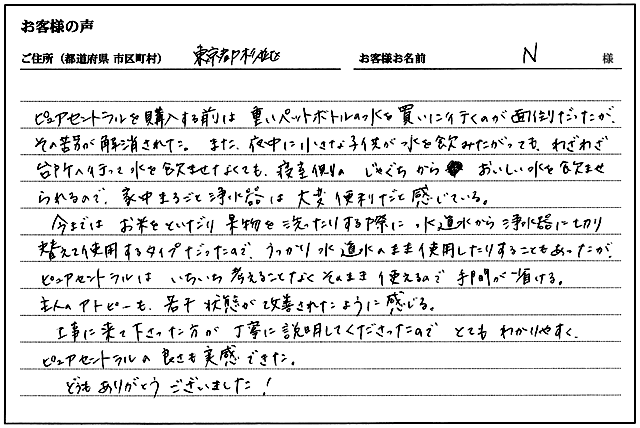 お客様の声
ご住所（都道府県 市区町村） 東京都杉並区 お客様お名前 N 様
ピュアセントラルを購入する前は 重いペットボトルの水を買いに行くのが面倒だったが、
その苦労が解消された。また、夜中に小さな子供が水を飲みたがっても、わざわざ
台所へ行って水を飲ませなくても、寝室側の じゃぐちから おいしい水を飲ませ
られるので、家中まるごと浄水器は大変便利だと感じている。
今までは お米をといだり 果物を洗ったりする際に 水道水から浄水器に切り
替えて使用するタイプだったので、うっかり水道水のまま使用したりすることもあったが、
ピュアセントラルは いちいち考えることなくそのまま使えるので 手間が省ける。
主人のアトピーも、若干状態が改善されたように感じる。
工事に来て下さった方が丁寧に説明してくださったので とてもわかりやすく、
ピュアセントラルの良さも実感できた。
どうもありがとうございました！